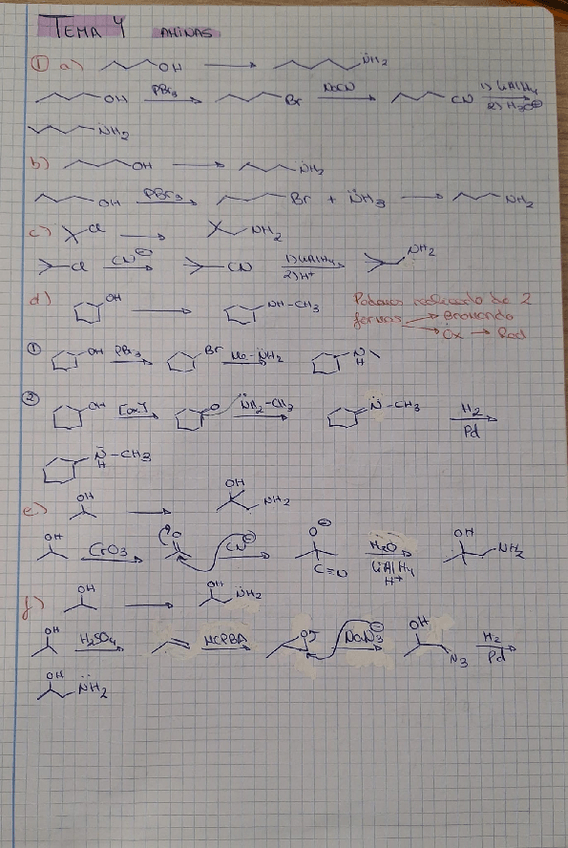 TEMA 4 AMINAS
① a) OH → N̈H2
OH PBr3 → Br NaCN → CN 1) LiAlH4 2) H3O⊕
N̈H2
b) OH → N̈H2
OH PBr3 → Br + N̈H3 → NH2
c) Cl → NH2
Cl CN⊖ → CN 1) LiAlH4 2) H+ → NH2
d) OH → NH-CH3 Podemos realizarlo de 2
formas → Bromando
→ Ox → Red
① OH PBr3 → Br Me-N̈H2 → N H
② OH [ox] → O N̈H2-CH3 → N̈-CH3 H2 Pd →
N̈-CH3 H
e) OH → OH NH2
OH CrO3 → O CN⊖ → O⊖ C≡N H2O LiAlH4 H+ → OH NH2
f) OH → OH N̈H2
OH H2SO4 → MCPBA → O NaN3 ⊖ → OH N3 H2 Pd →
OH N̈H2